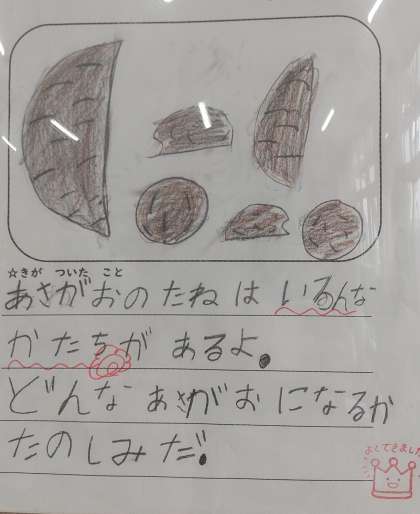 ☆きが ついた こと
あさがおのたねはいるんな
かたちがあるよ。
どんなあさがおになるか
たのしみだ。
よくできました